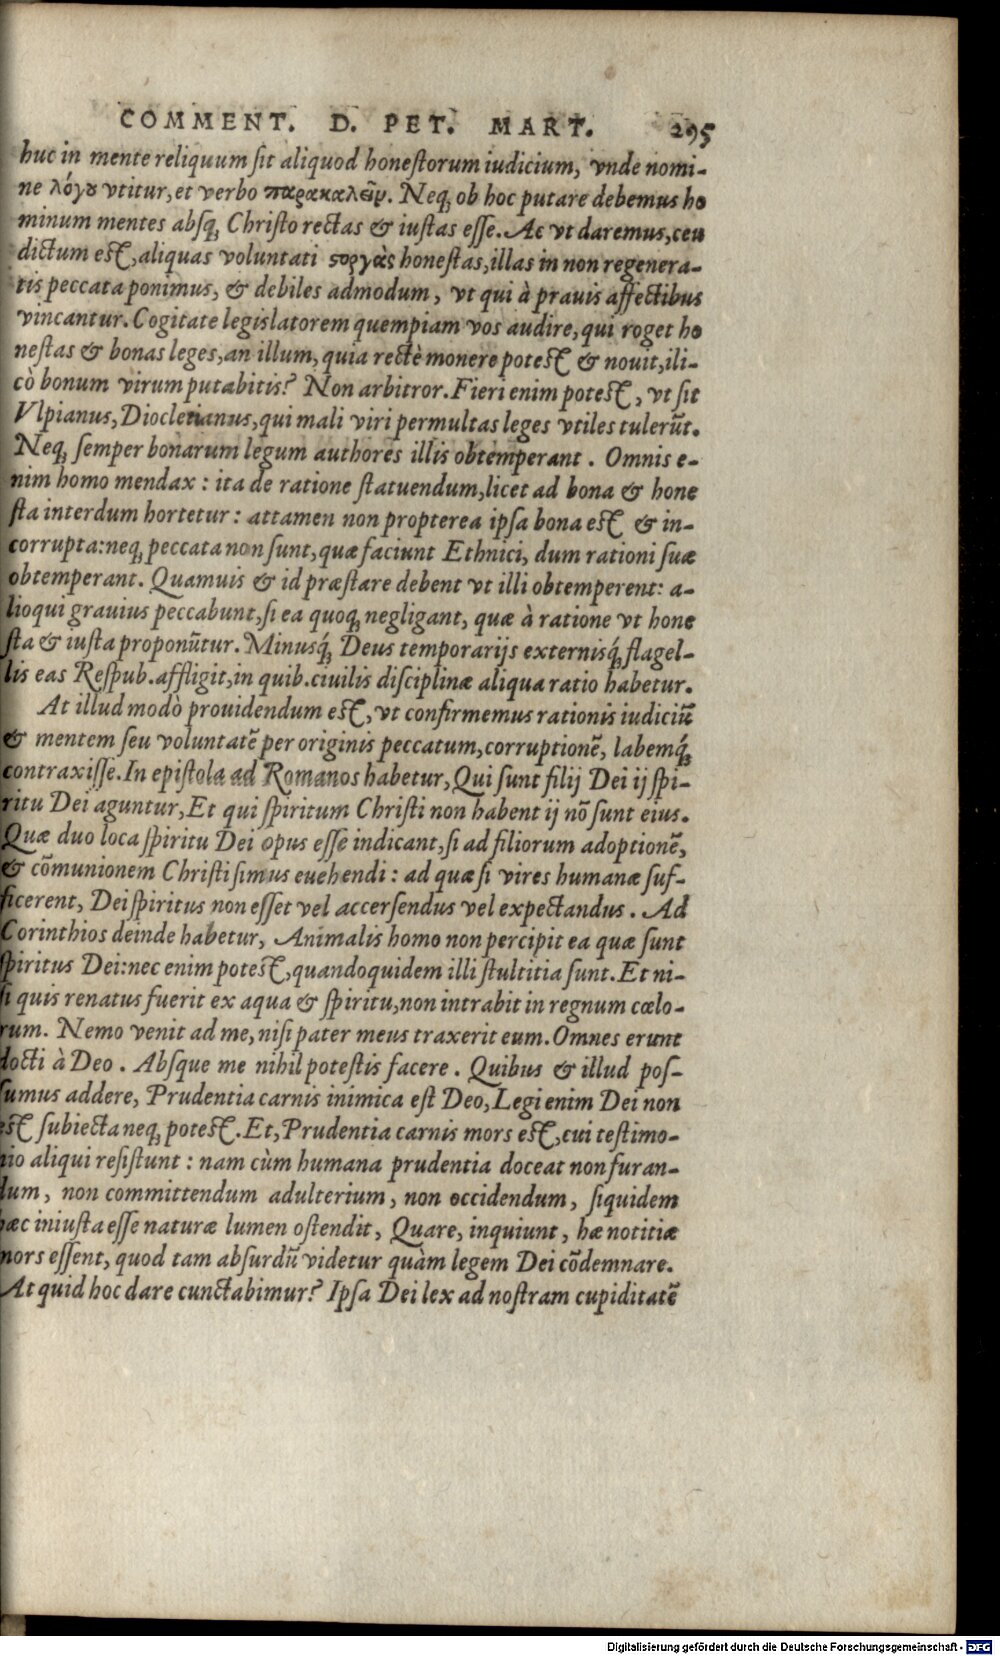 COMMENT. D. PET. MART. 295
huc in mente reliquum ſit aliquod honeſtorum iudicium, vnde nomi-
ne λόγȣ vtitur, et verbo παρακαλεῖν. Neq; ob hoc putare debemus ho
minum mentes abſq; Chriſto rectas & iuſtas eſſe. Ac vt daremus, ceu
dictum eſt, aliquas voluntati ϛοργὰς honeſtas, illas in non regenera-
tis peccata ponimus, & debiles admodum, vt qui à prauis affectibus
vincantur. Cogitate legislatorem quempiam vos audire, qui roget ho
neſtas & bonas leges, an illum, quia rectè monere poteſt & nouit, ili-
cò bonum virum putabitis? Non arbitror. Fieri enim poteſt, vt ſit
Vlpianus, Diocletianus, qui mali viri permultas leges vtiles tulerūt.
Neq; ſemper bonarum legum authores illis obtemperant. Omnis e-
nim homo mendax: ita de ratione ſtatuendum, licet ad bona & hone
ſta interdum hortetur: attamen non propterea ipſa bona eſt & in-
corrupta: neq; peccata non ſunt, quæ faciunt Ethnici, dum rationi ſuæ
obtemperant. Quamuis & id præſtare debent vt illi obtemperent: a-
lioqui grauius peccabunt, ſi ea quoq; negligant, quæ à ratione vt hone
ſta & iuſta proponūtur. Minusq́; Deus temporarijs externisq́; flagel-
lis eas Reſpub. affligit, in quib. ciuilis diſciplinæ aliqua ratio habetur.
At illud modò prouidendum eſt, vt confirmemus rationis iudiciū
& mentem ſeu voluntatē per originis peccatum, corruptionē, labemq́;
contraxiſſe. In epiſtola ad Romanos habetur, Qui ſunt filij Dei ij ſpi-
ritu Dei aguntur, Et qui ſpiritum Chriſti non habent ij nō ſunt eius.
Quæ duo loca ſpiritu Dei opus eſſe indicant, ſi ad filiorum adoptionē,
& cōmunionem Chriſti ſimus euehendi: ad quæ ſi vires humanæ ſuf-
ficerent, Dei ſpiritus non eſſet vel accerſendus vel expectandus. Ad
Corinthios deinde habetur, Animalis homo non percipit ea quæ ſunt
ſpiritus Dei: nec enim poteſt, quandoquidem illi ſtultitia ſunt. Et ni-
ſi quis renatus fuerit ex aqua & ſpiritu, non intrabit in regnum cœlo-
rum. Nemo venit ad me, niſi pater meus traxerit eum. Omnes erunt
docti à Deo. Abſque me nihil poteſtis facere. Quibus & illud poſ-
ſumus addere, Prudentia carnis inimica eſt Deo, Legi enim Dei non
eſt ſubiecta neq; poteſt. Et, Prudentia carnis mors eſt, cui teſtimo-
nio aliqui reſiſtunt: nam cùm humana prudentia doceat non furan-
dum, non committendum adulterium, non occidendum, ſiquidem
hæc iniuſta eſſe naturæ lumen oſtendit, Quare, inquiunt, hæ notitiæ
mors eſſent, quod tam abſurdū videtur quàm legem Dei cōdemnare.
At quid hoc dare cunctabimur? Ipſa Dei lex ad noſtram cupiditatē
Digitalisierung gefördert durch die Deutsche Forschungsgemeinschaft - DFG